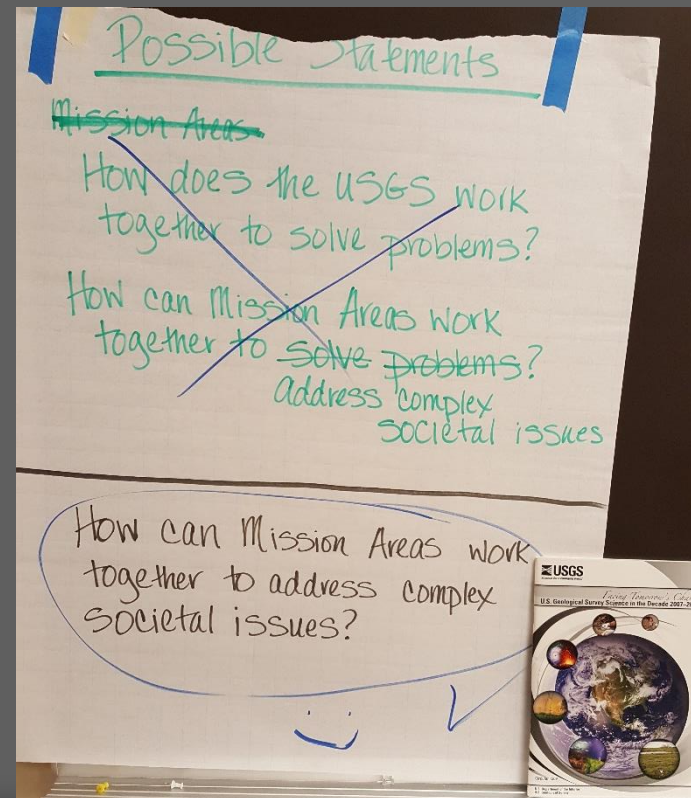 Possible Statements
Mission Areas
How does the USGS work
together to solve problems?
How can Mission Areas work
together to solve problems?
address complex
societal issues
How can Mission Areas work
together to address complex
societal issues?
USGS
Facing Tomorrow's
U.S. Geological Survey Science in the Decade 2007–